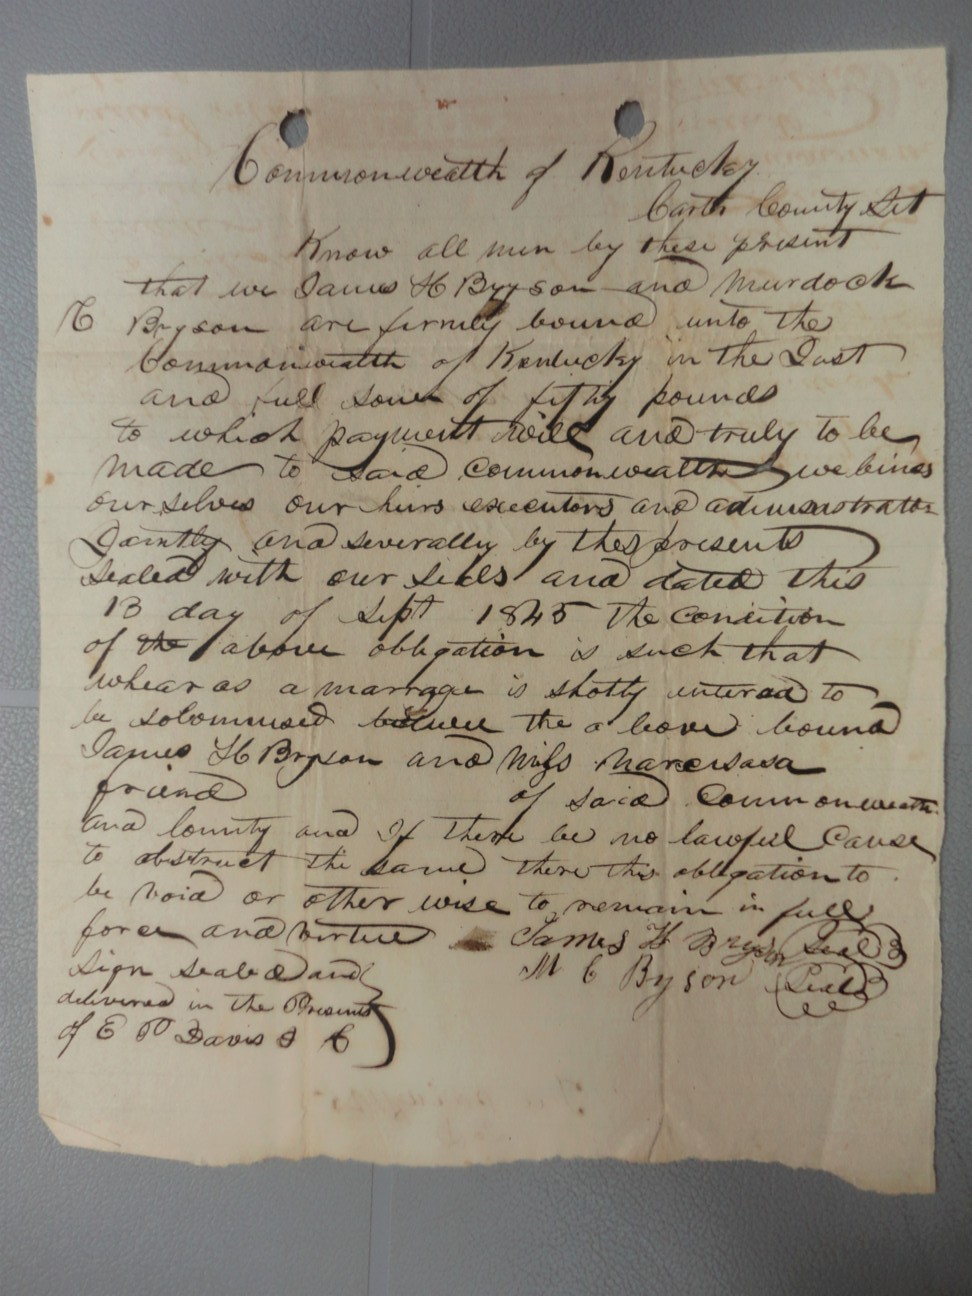 Commonwealth of Kentucky
Carter County Sct
Know all men by these present
that we James H Bryson and Murdock
C Bryson are firmly bound unto the
Commonwealth of Kentucky in the Just
and full som of fifty pounds
to which payment will and truly to be
made to said commonwealth we binds
our selves our heirs executors and administrators
Jointly and severally by thes presents
Sealed with our seals and dated this
13 day of Sept 1845 the condition
of the above obblgation is such that
whear as a marrage is shotly intended to
be solommised between the a bove bound
James H Bryson and Miss Narcissa
friend of said Commonwealth
and County and If there be no lawful Cause
to obstruct the same there this obblgation to
be void or other wise to remain in full
force and virtue James H Bryson Seal
Sign sealed and M C Byson Seal
delivered in the Presents
of E P Davis D C